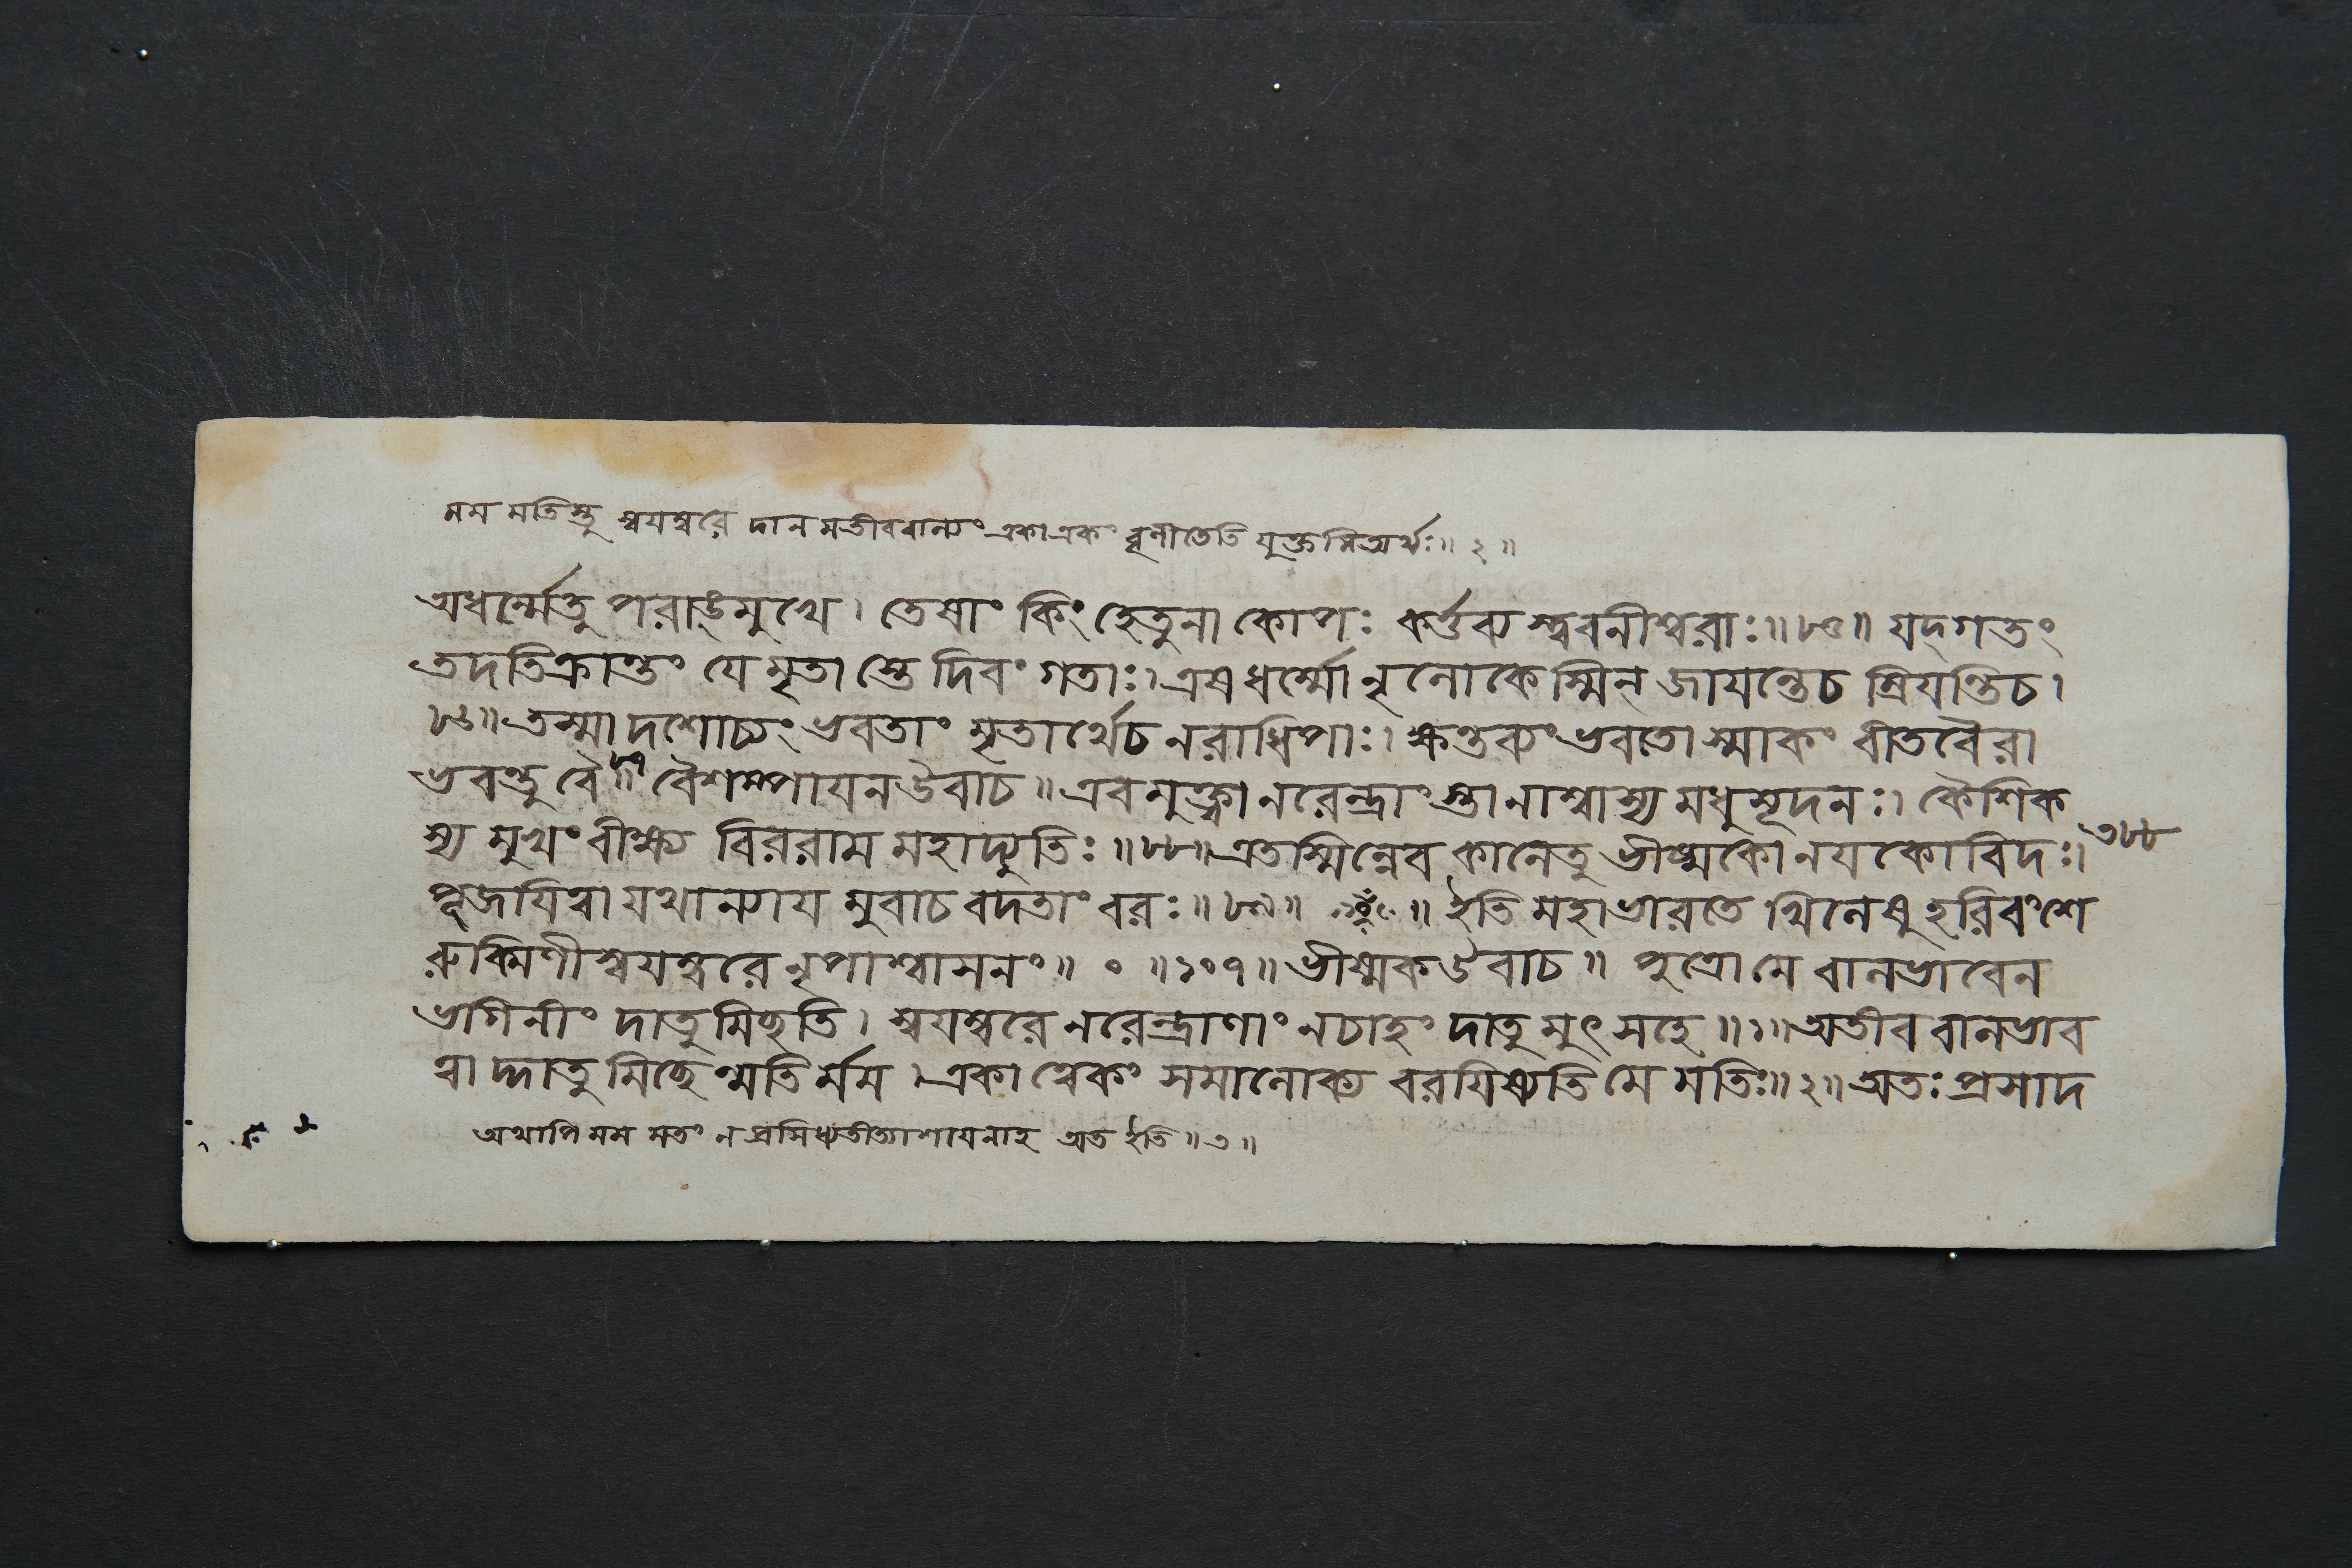 মম মতিস্তু স্বযম্বরে দান মতীববাল্যং একাএকং বৃণীতেতি যুক্তমিত্যর্থঃ॥ ২ ॥
অধর্ম্মেতু পরাঙ্মুখে। তেষাং কিং হেতুনা কোপঃ কর্ত্তব্য স্ত্ববনীশ্বরাঃ॥৮৫॥ যদ্গতং
তদতিক্রান্তং যে মৃতা স্তে দিবং গতাঃ। এষ ধর্ম্মো নৃলোকেস্মিন্ জাযন্তেচ ম্রিযন্তিচ।
৮৬॥ তস্মা দশোচ্যং ভবতাং মৃতার্থেচ নরাধিপাঃ। ক্ষন্তব্যং ভবতো স্মাকং বীতবৈরা
ভবন্তু বৈ ॥৮৭ বৈশম্পাযনউবাচ॥ এবমুক্ত্বা নরেন্দ্রাং স্তানাশ্বাস্য মধুসূদনঃ। কৈশিক
স্য মুখং বীক্ষ্য বিররাম মহাদ্যুতিঃ॥৮৮॥ এতস্মিন্নেব কালেতু ভীষ্মকো নযকোবিদঃ।
৩৮৮
পূজযিত্বা যথান্যায মুবাচ বদতাং বরঃ॥৮৯॥ ॥ ইতি মহাভারতে খিলেষু হরিবংশে
রুক্মিণীস্বযম্বরে নৃপাশ্বাসনং॥ ০ ॥১০৭॥ ভীষ্মকউবাচ॥ পুত্রো মে বালভাবেন
ভগিনীং দাতুমিচ্ছতি। স্বযম্বরে নরেন্দ্রাণাং নচাহং দাতু মুৎসহে॥১॥ অতীব বালভাব
ত্বা দ্দাতু মিচ্ছেন্মতি র্মম। একা ত্বেকং সমালোক্য বরযিষ্যতি মে মতিঃ॥২॥ অতঃ প্রসাদ
অথাপি মম মতং ন প্রসিধ্যতীত্যাশযেনাহ অত ইতি॥৩॥